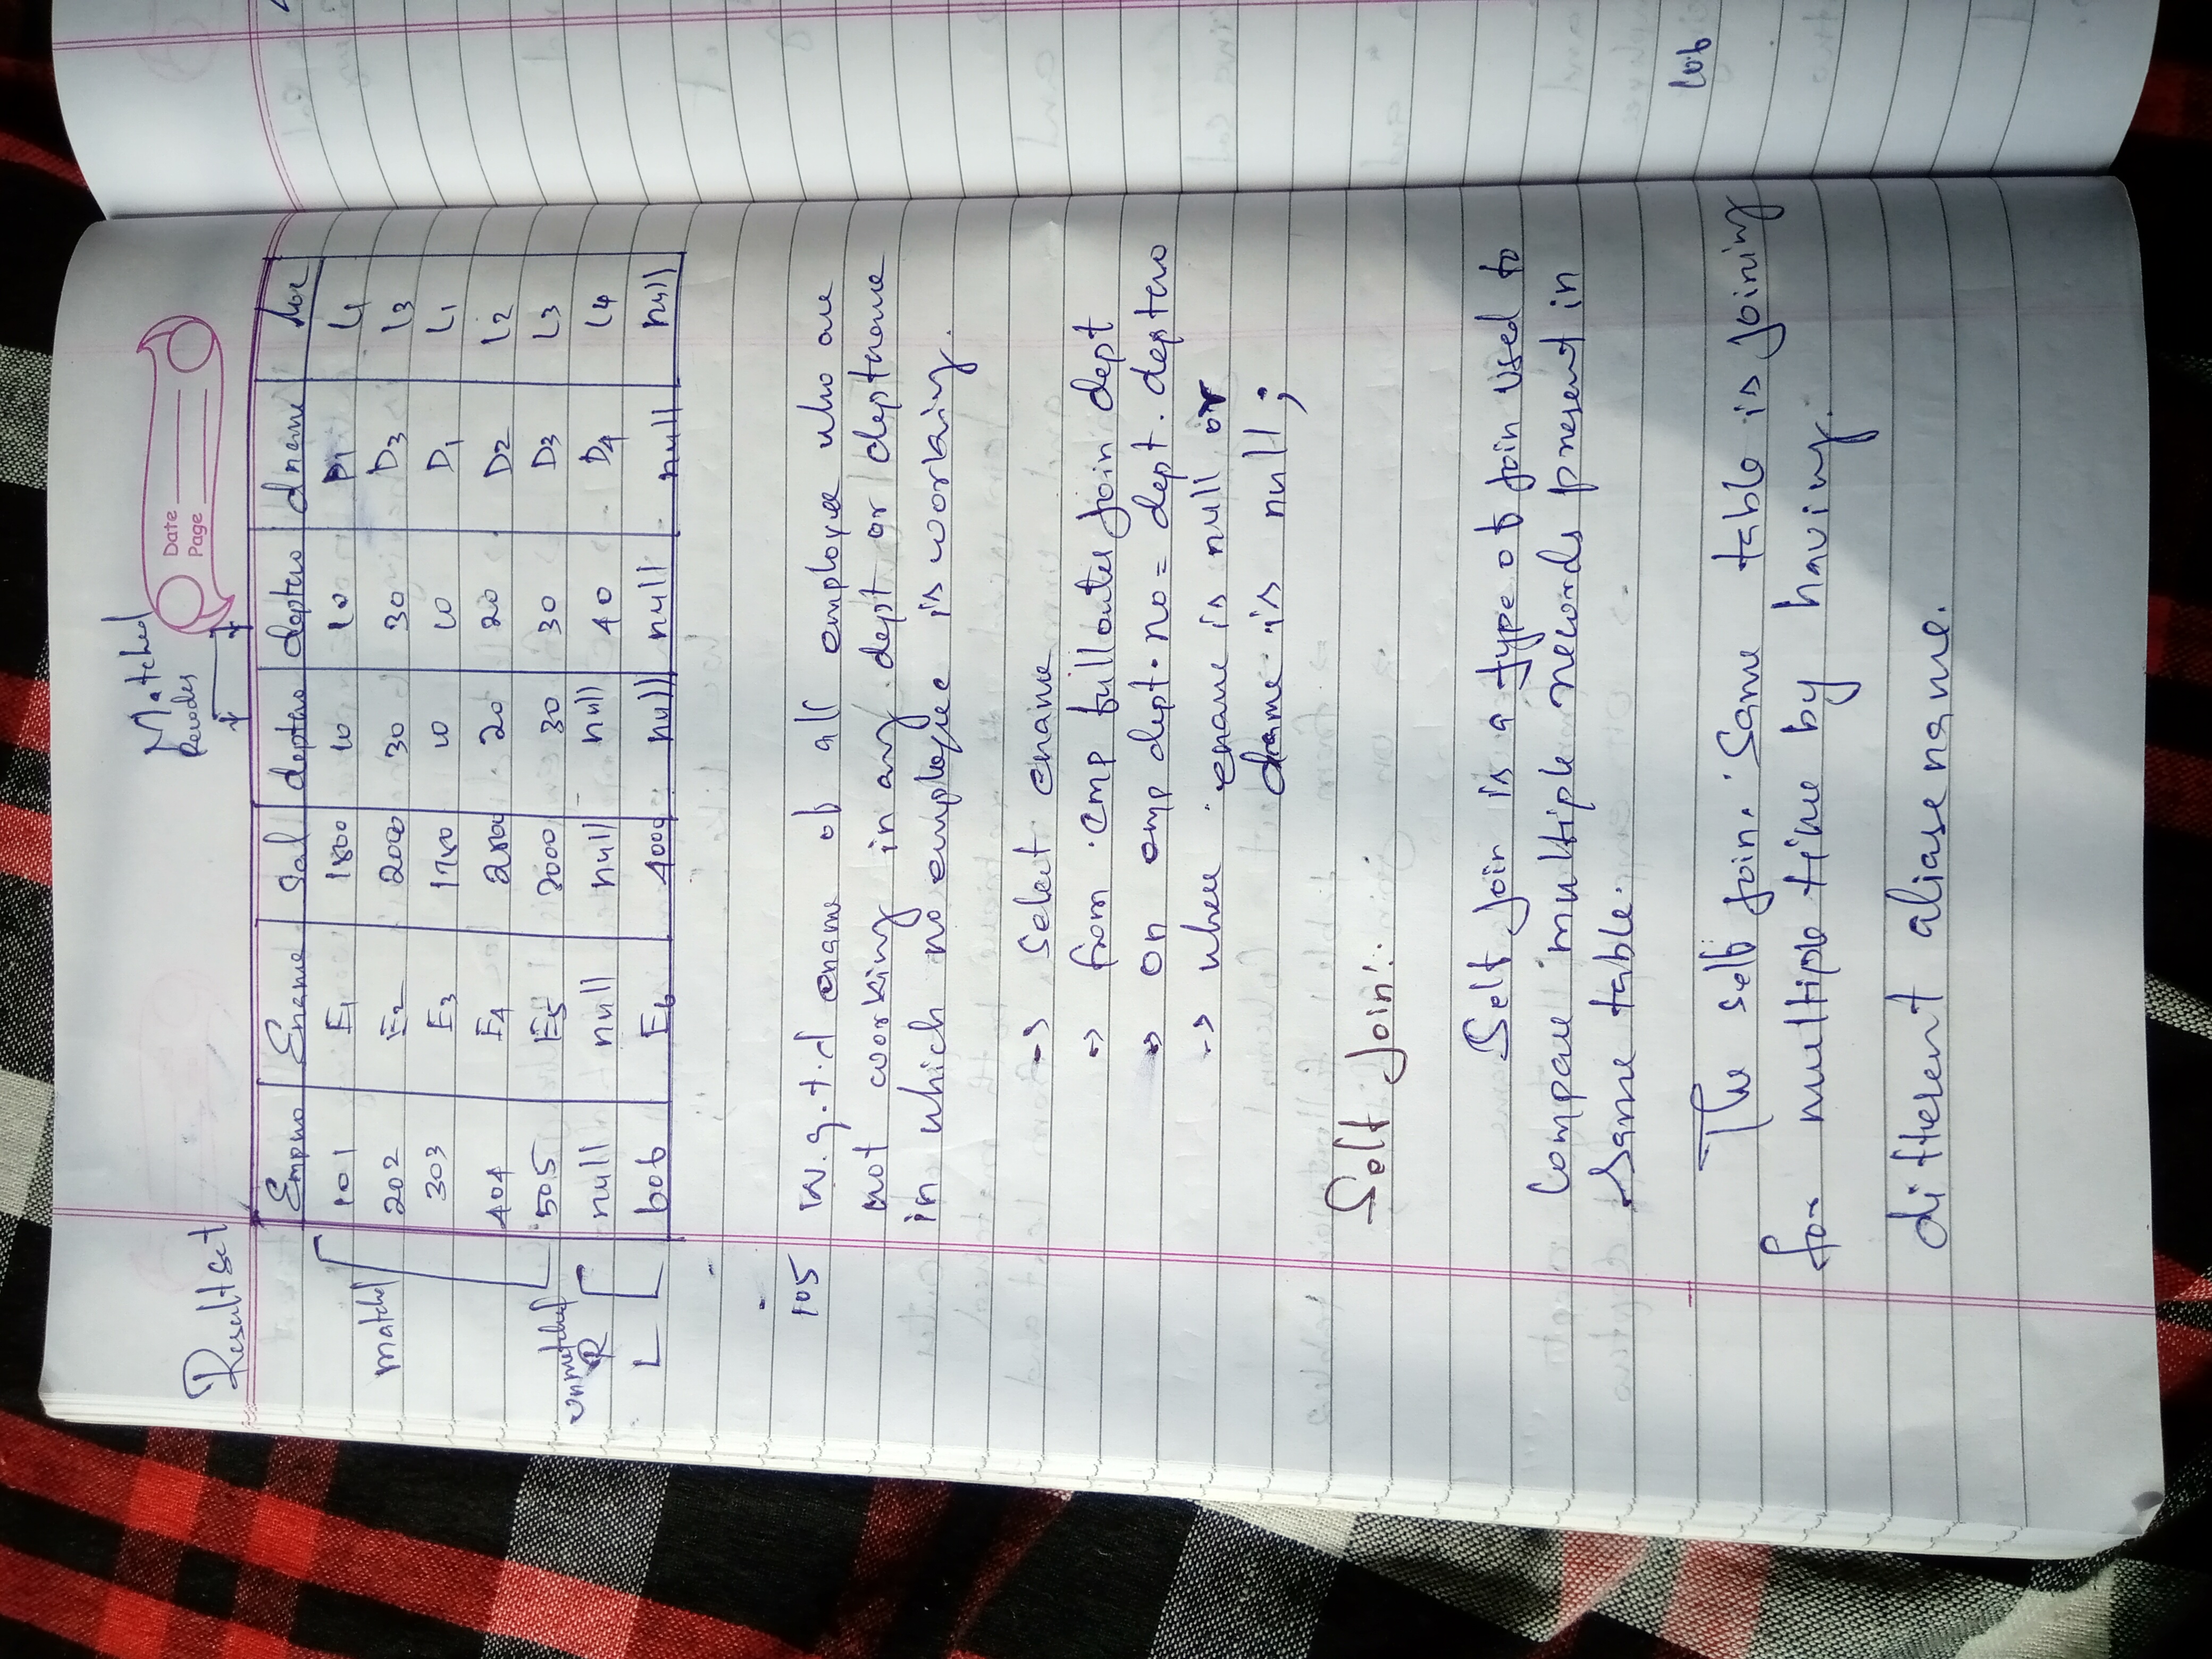 Result set
Matched
Date
Page
Empno Ename Sal deptno deptno dname loc
matched
101 E1 1800 10 10 D1 L1
202 E2 2000 30 30 D3 L3
303 E3 10 10 D1 L1
404 E4 20 20 D2 L2
505 E5 2000 30 30 D3 L3
R null null null null 40 D4 L4
L 606 E6 4000 null null null null
105 W.q.t.d ename of all employee who are
not working in any dept or deptname
in which no employee is working.
-> Select ename
-> from emp full outer join dept
-> on emp dept.no = dept.deptno
-> where ename is null or
dname is null;
Self Join:
Self Join is a type of Join used to
Compare multiple records present in
Same table.
The self Join. Same table is joining
for multiple time by having
different aliase name.
106